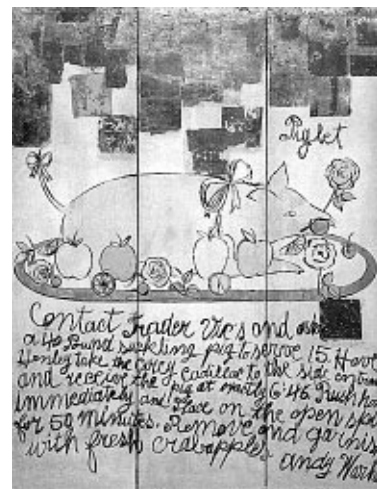 Piglet
Contact Trader Vic's and
a 40 pound suckling pig to serve 15. Have
Hanley take the Carey Cadillac to the side entrance
and receive the pig at exactly 6:45. Rush home
immediately and place on the open spit
for 50 minutes. Remove and garnish
with fresh crabapples
Andy Warh